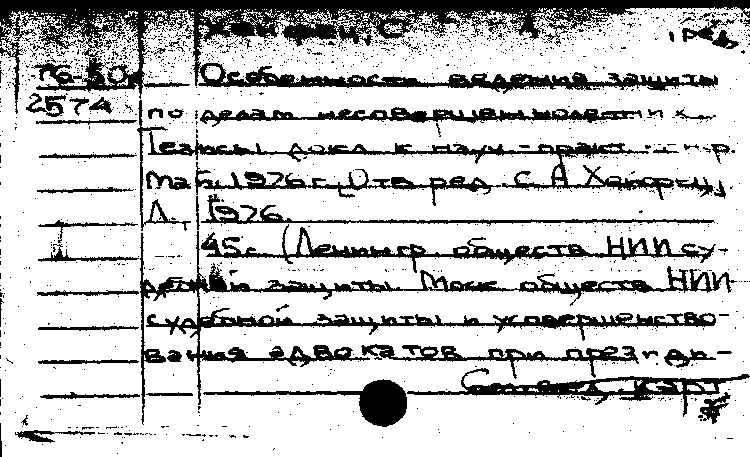 Хейфец, С. А. , ред.
П6-50 Особенности ведения защиты
2574 по делам несовершеннолетних.
Тезисы докл к науч.-практ.
Май, 1976 г., Отв ред С А Хейфец,
Л., 1976.
45 с. (Ленингр общество НИИ су-
дебной защиты Моск общество НИИ
судебной защиты и усовершенство-
вания адвокатов при презид-
карт